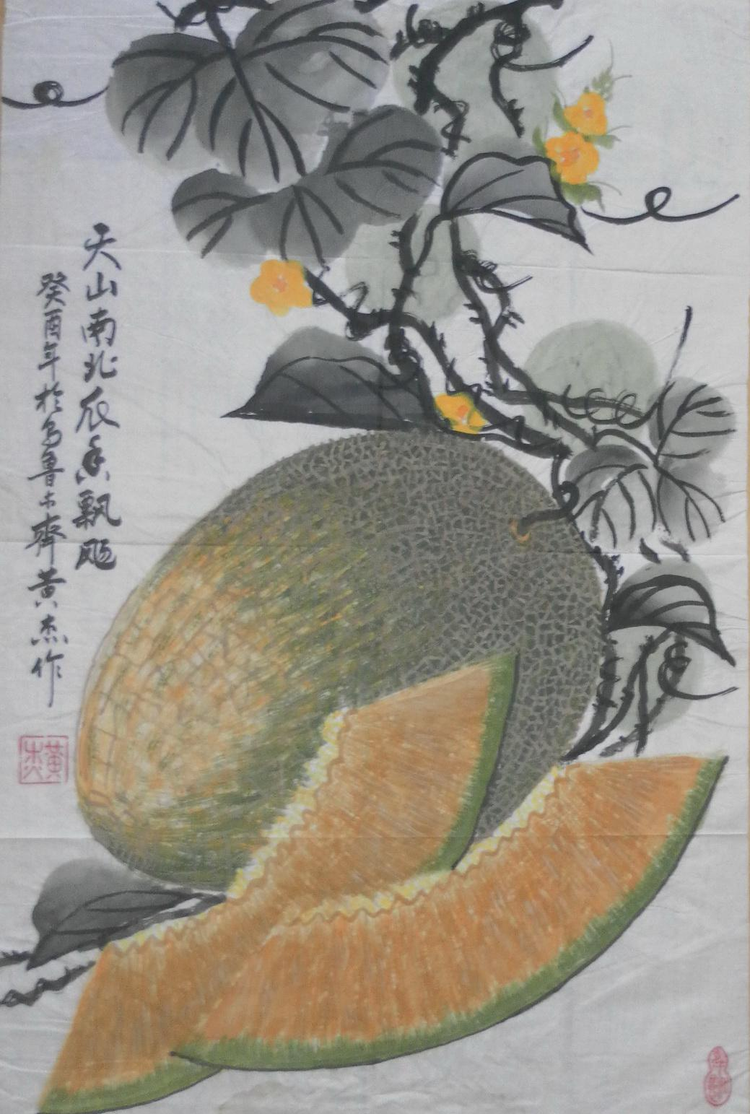 天山南北瓜香飘飏
癸酉年於乌鲁木齊黄杰作
黄杰